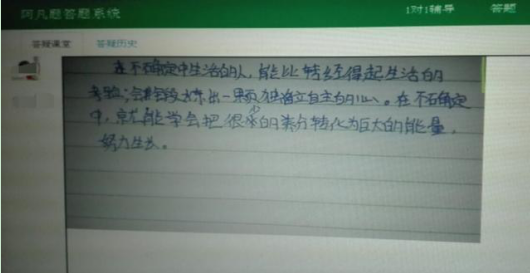 阿凡题答题系统
1对1辅导 答题
答疑课堂 答疑历史
在不确定中生活的人,能比较经得起生活的
考验,会锻炼出一颗独立自主的心。在不确定
中,就能学会把很少的养分转化为巨大的能量,
努力生长。